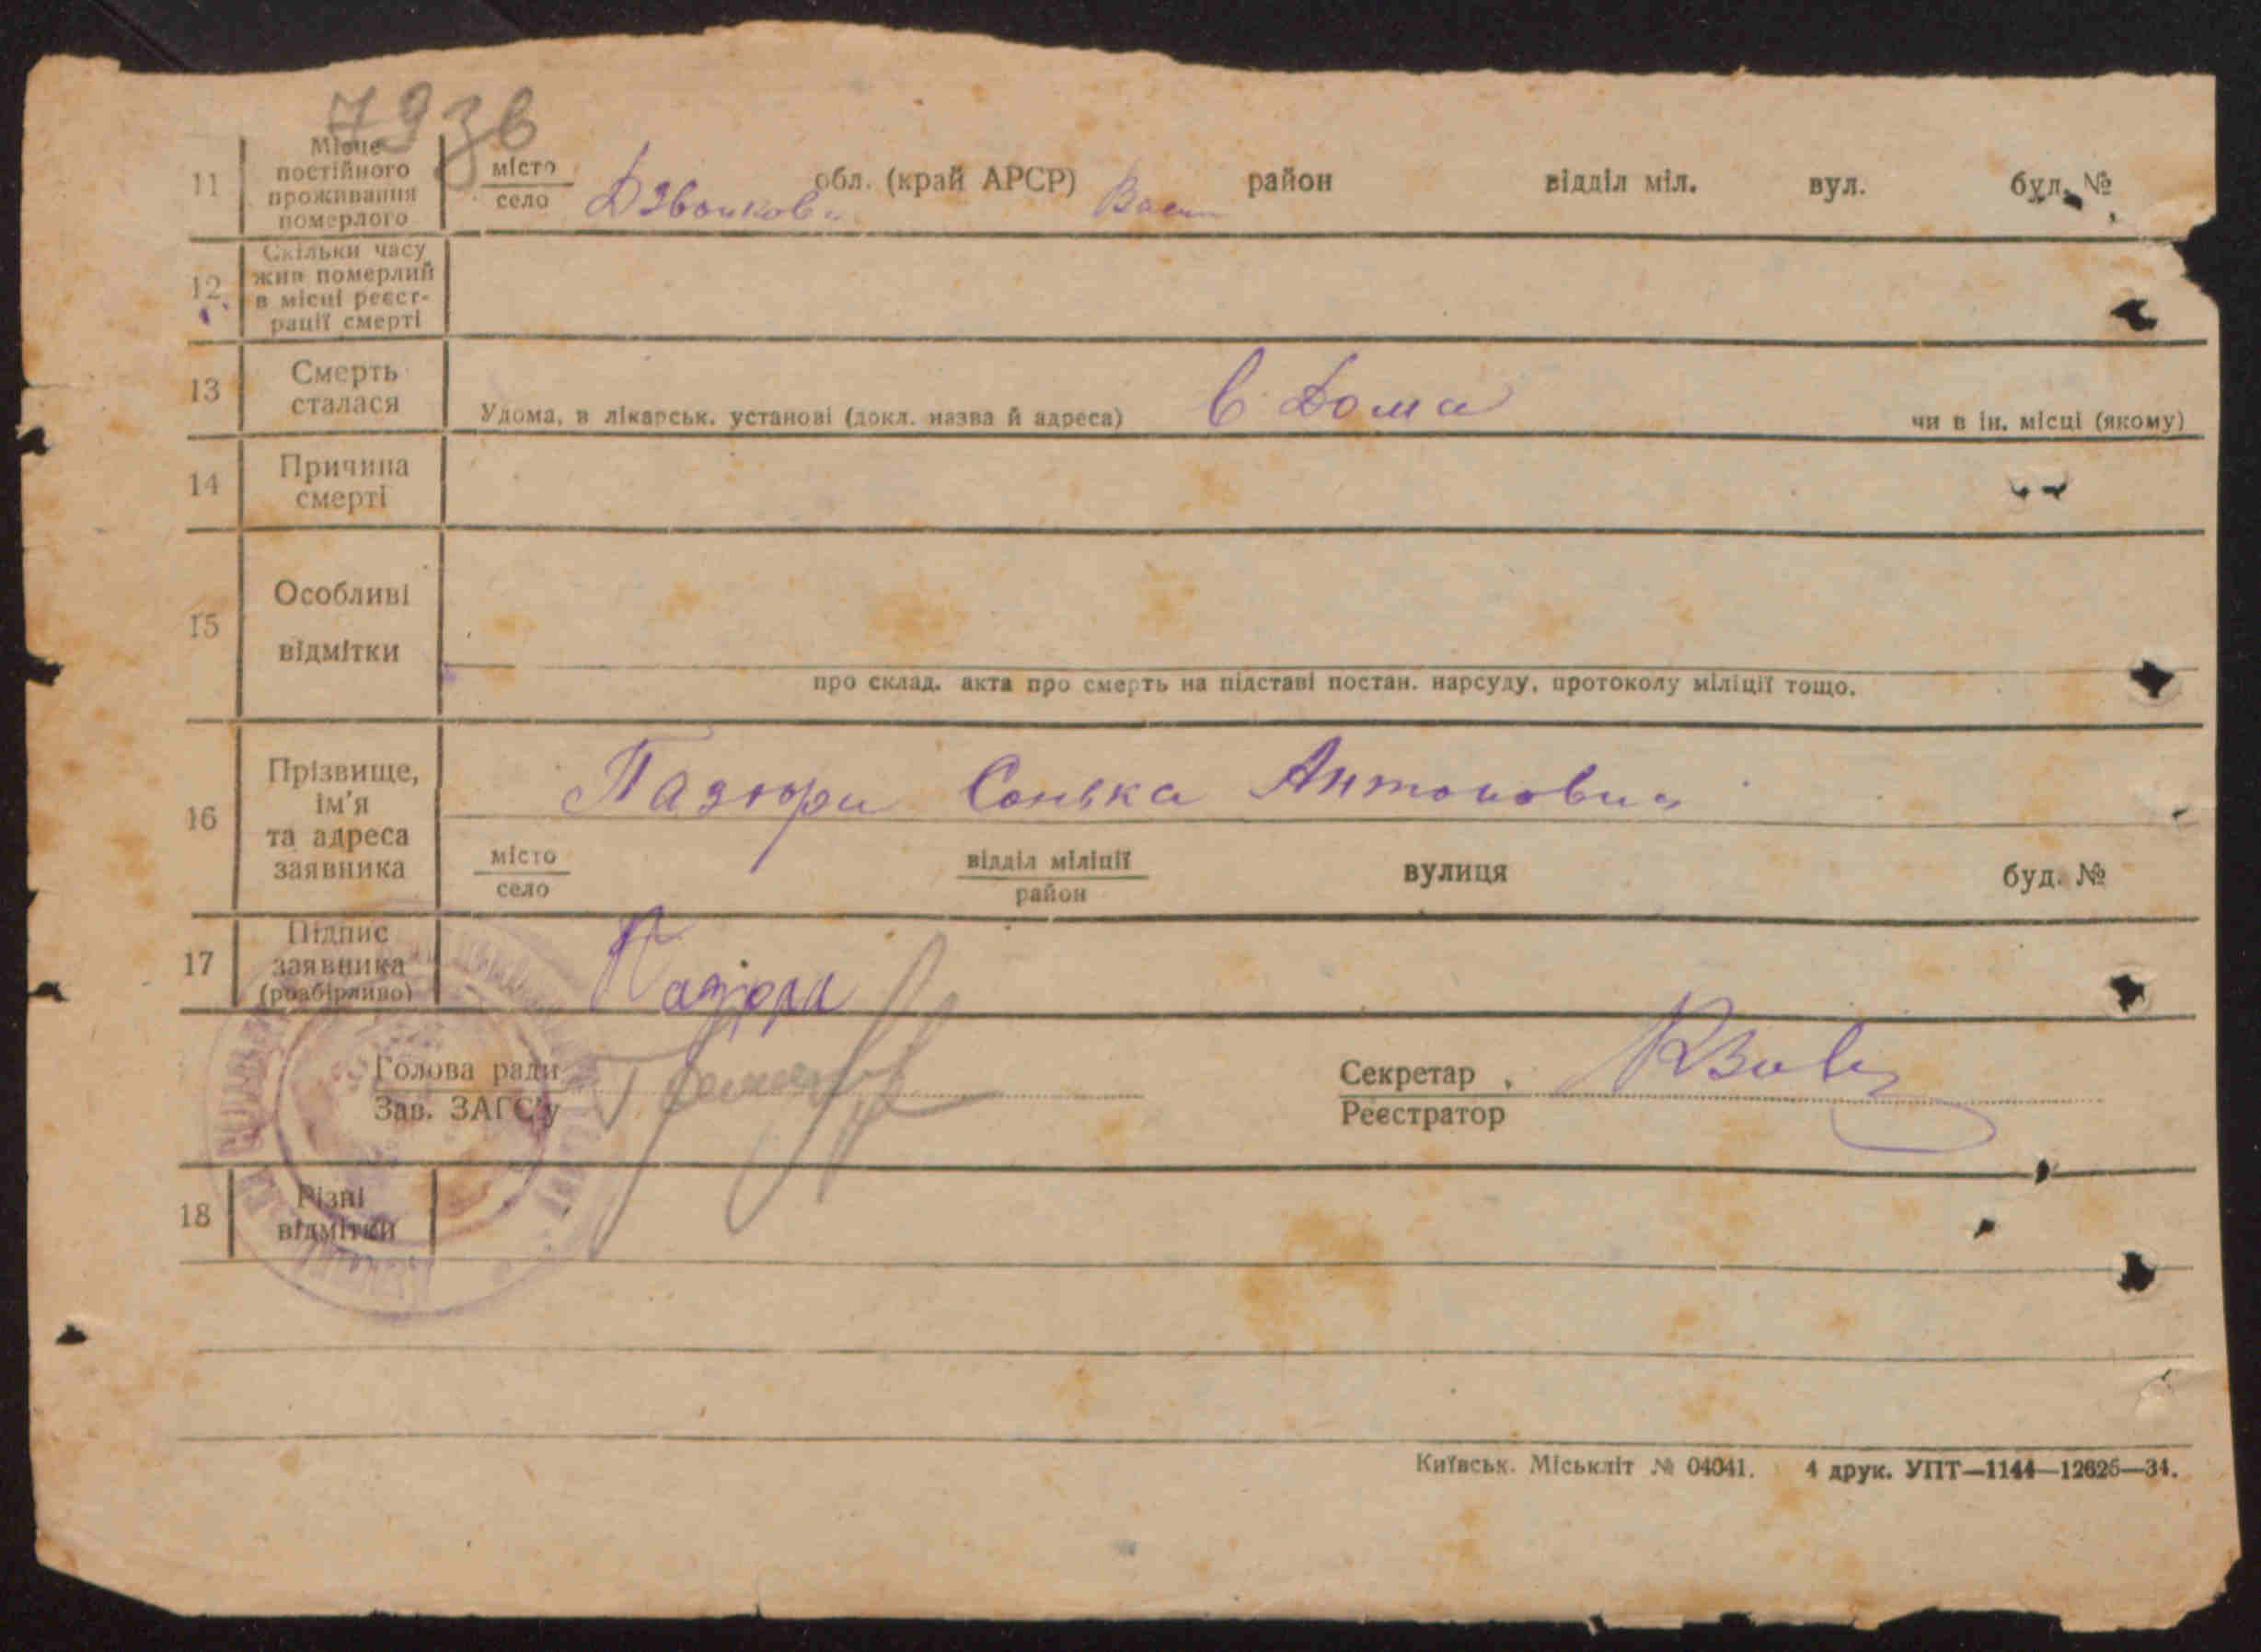 793в
11 Місце постійного проживання померлого місто село Дзвонкова обл. (край АРСР) Васи район відділ міл. вул. буд. №
12 Скільки часу жив померлий в місці реєстрації смерті
13 Смерть сталася Удома, в лікарськ. установі (докл. назва й адреса) в дома чи в ін. місці (якому)
14 Причина смерті
15 Особливі відмітки
про склад. акта про смерть на підставі постан. нарсуду, протоколу міліції тощо.
16 Прізвище, ім'я та адреса заявника Пазюри Сонька Антонович
місто село відділ міліції район вулиця буд. №
17 Підпис заявника (розбірливо) Пазюри
Голова ради Зав. ЗАГС'у Секретар Реєстратор
18 Різні відмітки
Київськ. Міськліт № 04041. 4 друк. УПТ—1144—12626—34.